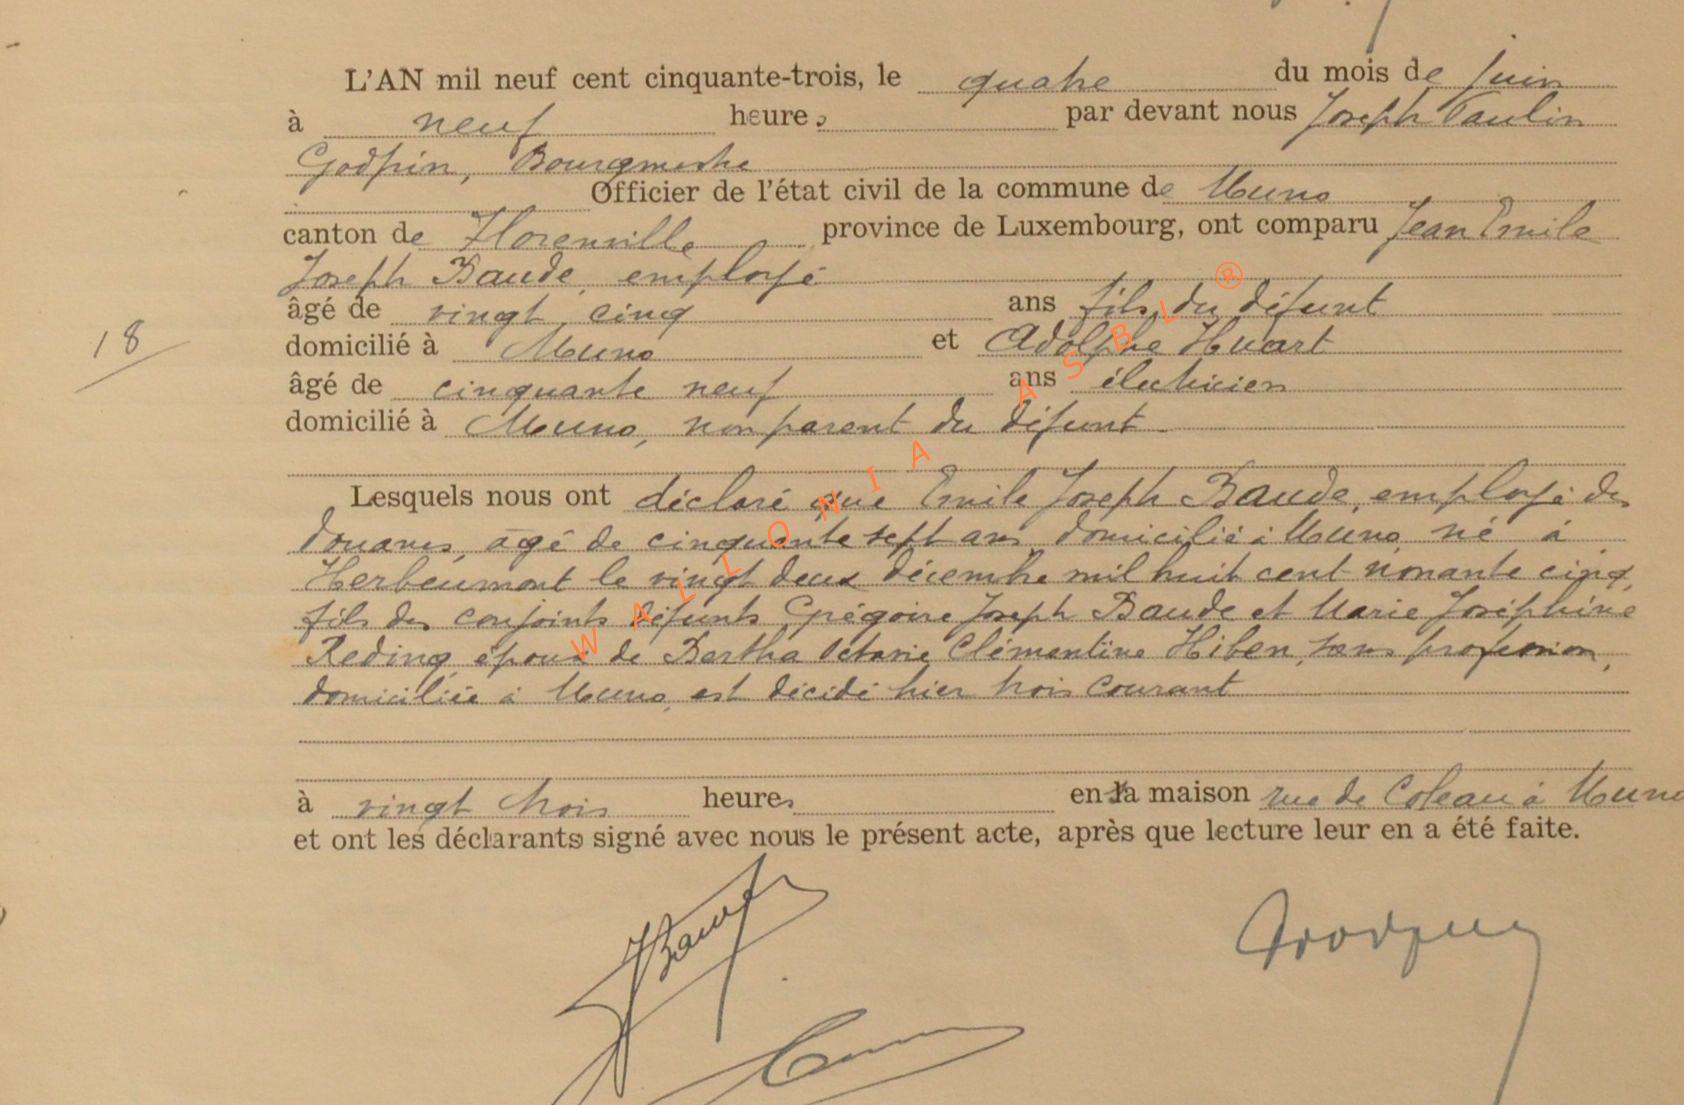 L'AN mil neuf cent cinquante-trois, le quatre du mois de juin
à neuf heures par devant nous Joseph Paulin
Godfrin, Bourgmestre
Officier de l'état civil de la commune de Muno
canton de Florenville province de Luxembourg, ont comparu Jean Emile
Joseph Baude, employé
âgé de vingt cinq ans fils du défunt
domicilié à Muno et Adolphe Huart
18
âgé de cinquante neuf ans électricien
domicilié à Muno, non parent du défunt
Lesquels nous ont déclaré que Emile Joseph Baude, employé des
douanes, âgé de cinquante sept ans, domicilié à Muno, né à
Herbeumont le vingt deux décembre mil huit cent nonante cinq,
fils des conjoints défunts Grégoire Joseph Baude et Marie Joséphine
Reding, époux de Bertha Octavie Clémentine Hiben, sans profession,
domiciliée à Muno, est décédé hier trois courant
à vingt trois heures en la maison rue de Coleau à Muno
et ont les déclarants signé avec nous le présent acte, après que lecture leur en a été faite.
WALLONIA ASBL ®